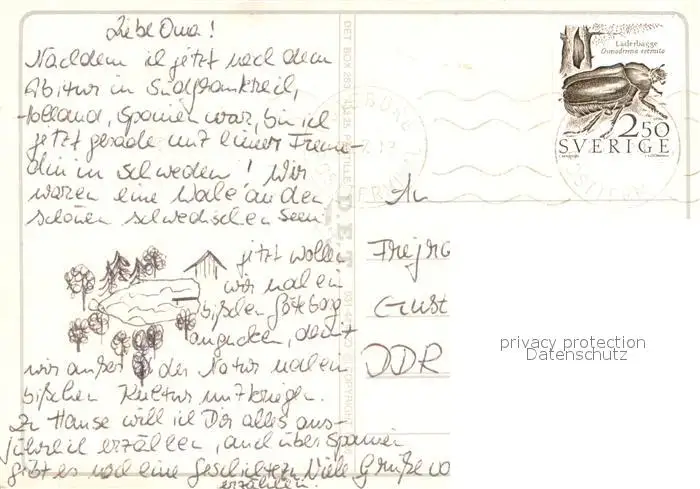 Liebe Oma!
Nachdem ich jetzt nach dem
Abitur in Südfrankreich,
Holland, Spanien war, bin ich
jetzt gerade mit einer Freun-
din in Schweden! Wir
waren eine Woche an den
schönen schwedischen Seen.
jetzt wollen
wir noch ein
bißchen Göteborg
angucken, damit
wir außer der Natur noch ein
bißchen Kultur mitkriegen.
Zu Hause will ich Dir alles aus-
führlich erzählen, auch über Spanien
gibt es noch eine Geschichte zu
erzählen. Viele Grüße vo
An
Ernst
DDR
Läderbagge
Osmoderma eremita
2.50
SVERIGE
privacy protection
Datenschutz